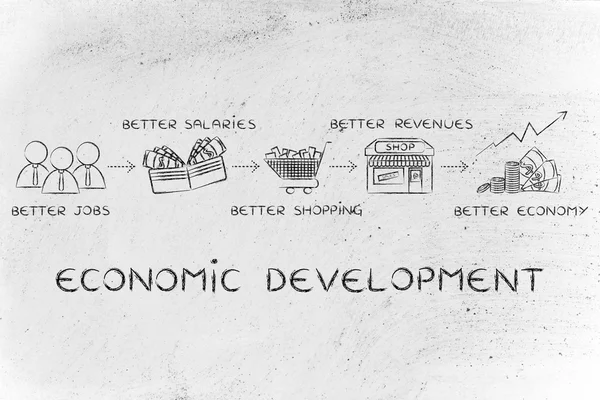 BETTER SALARIES
BETTER REVENUES
SHOP
BETTER JOBS
BETTER SHOPPING
BETTER ECONOMY
ECONOMIC DEVELOPMENT